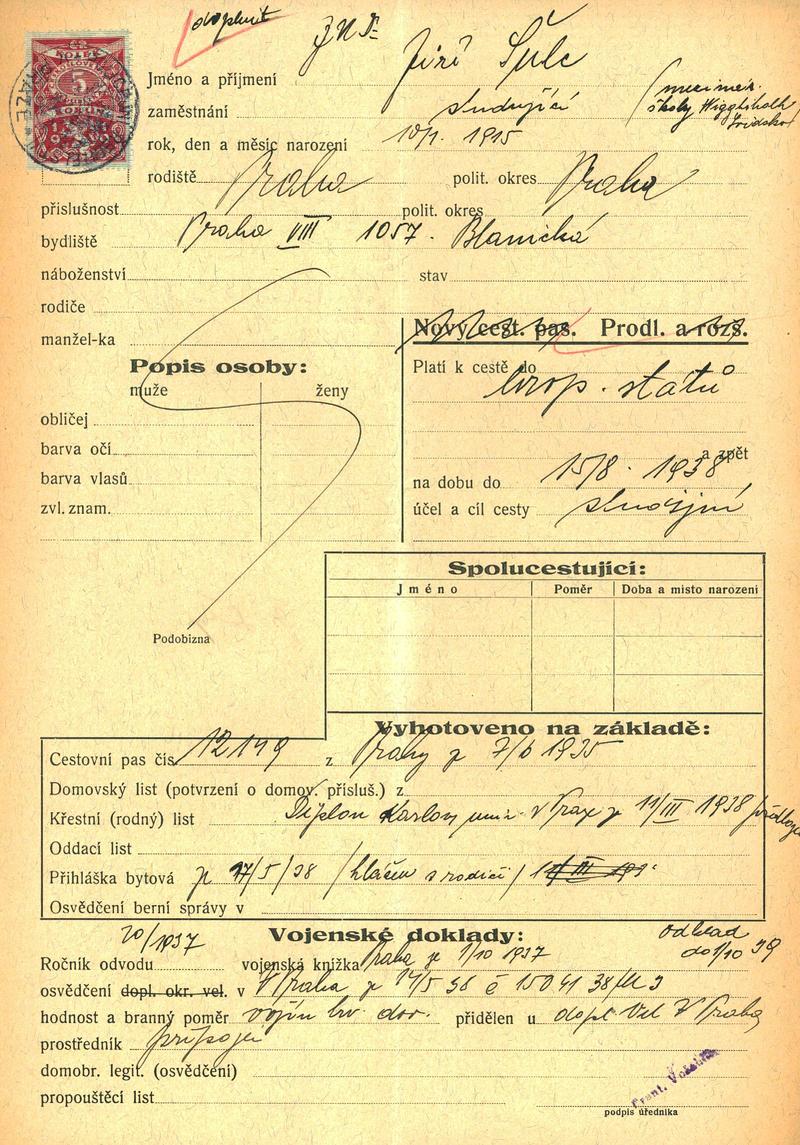 doplnit
Jiří Šulc
Jméno a příjmení
zaměstnání studující
školy
rok, den a měsíc narození 10/1. 1915
rodiště Praha polit. okres Praha
příslušnost polit. okres
bydliště Praha VIII 1057. Blanická
náboženství stav
rodiče
manžel-ka
Nový cest. pas. Prodl. a rozš.
Popis osoby:
muže ženy
obličej
barva očí
barva vlasů
zvl. znam.
Platí k cestě do evrop. států
a zpět
na dobu do 15/8. 1938
účel a cíl cesty studijní
Spolucestující:
Jméno Poměr Doba a místo narození
Podobizna
Vyhotoveno na základě:
Cestovní pas čís. 12149 z Prahy z 7/6 1935
Domovský list (potvrzení o domov. přísluš.) z
Křestní (rodný) list Diplom Karlovy univ. v Praze z 11/III 1938
Oddací list
Přihláška bytová z 27/5/38 /hlášen s rodiči/
Osvědčení berní správy v
20/1937
Vojenské doklady:
odklad
do 1/10 39
Ročník odvodu vojenská knížka Praha z 1/10 1937
osvědčení dopl. okr. vel. v Praha z 14/5 38 č 15041
hodnost a branný poměr vojín přidělen u dopl. Vel. Praha
prostředník
domobr. legit. (osvědčení)
propouštěcí list
Frant.
podpis úředníka